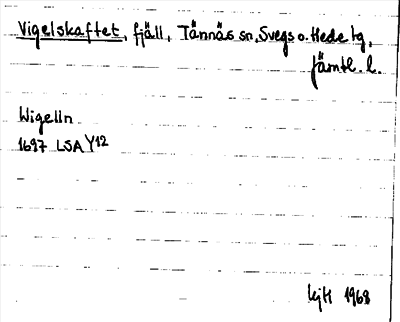 Vigelskaftet, fjäll, Tännäs sn, Svegs o. Hede tg,
Jämtl. l.
Wigelln
1697 LSA Y12
kjH 1968